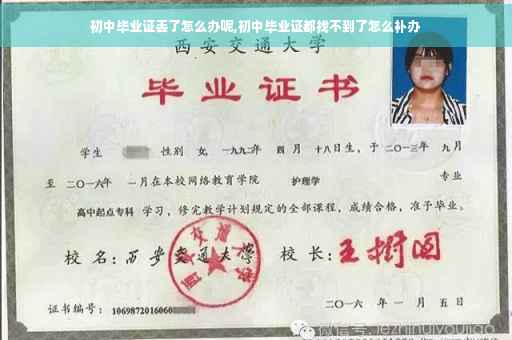 初中毕业证丢了怎么办呢,初中毕业证都找不到了怎么补办
西安交通大学
毕业证书
学生 性别 女, 一九九二年 四月 十八日生, 于 二〇一三年 九月
至 二〇一六年 一月在本校网络教育学院 护理学 专业
高中起点专科 学习, 修完教学计划规定的全部课程, 成绩合格, 准予毕业。
校 名: 西安交通大学 校 长: 王树国
证书编号: 1069872016060
二〇一六 年 一 月 五 日
微信号: jezhinuiyoujiao